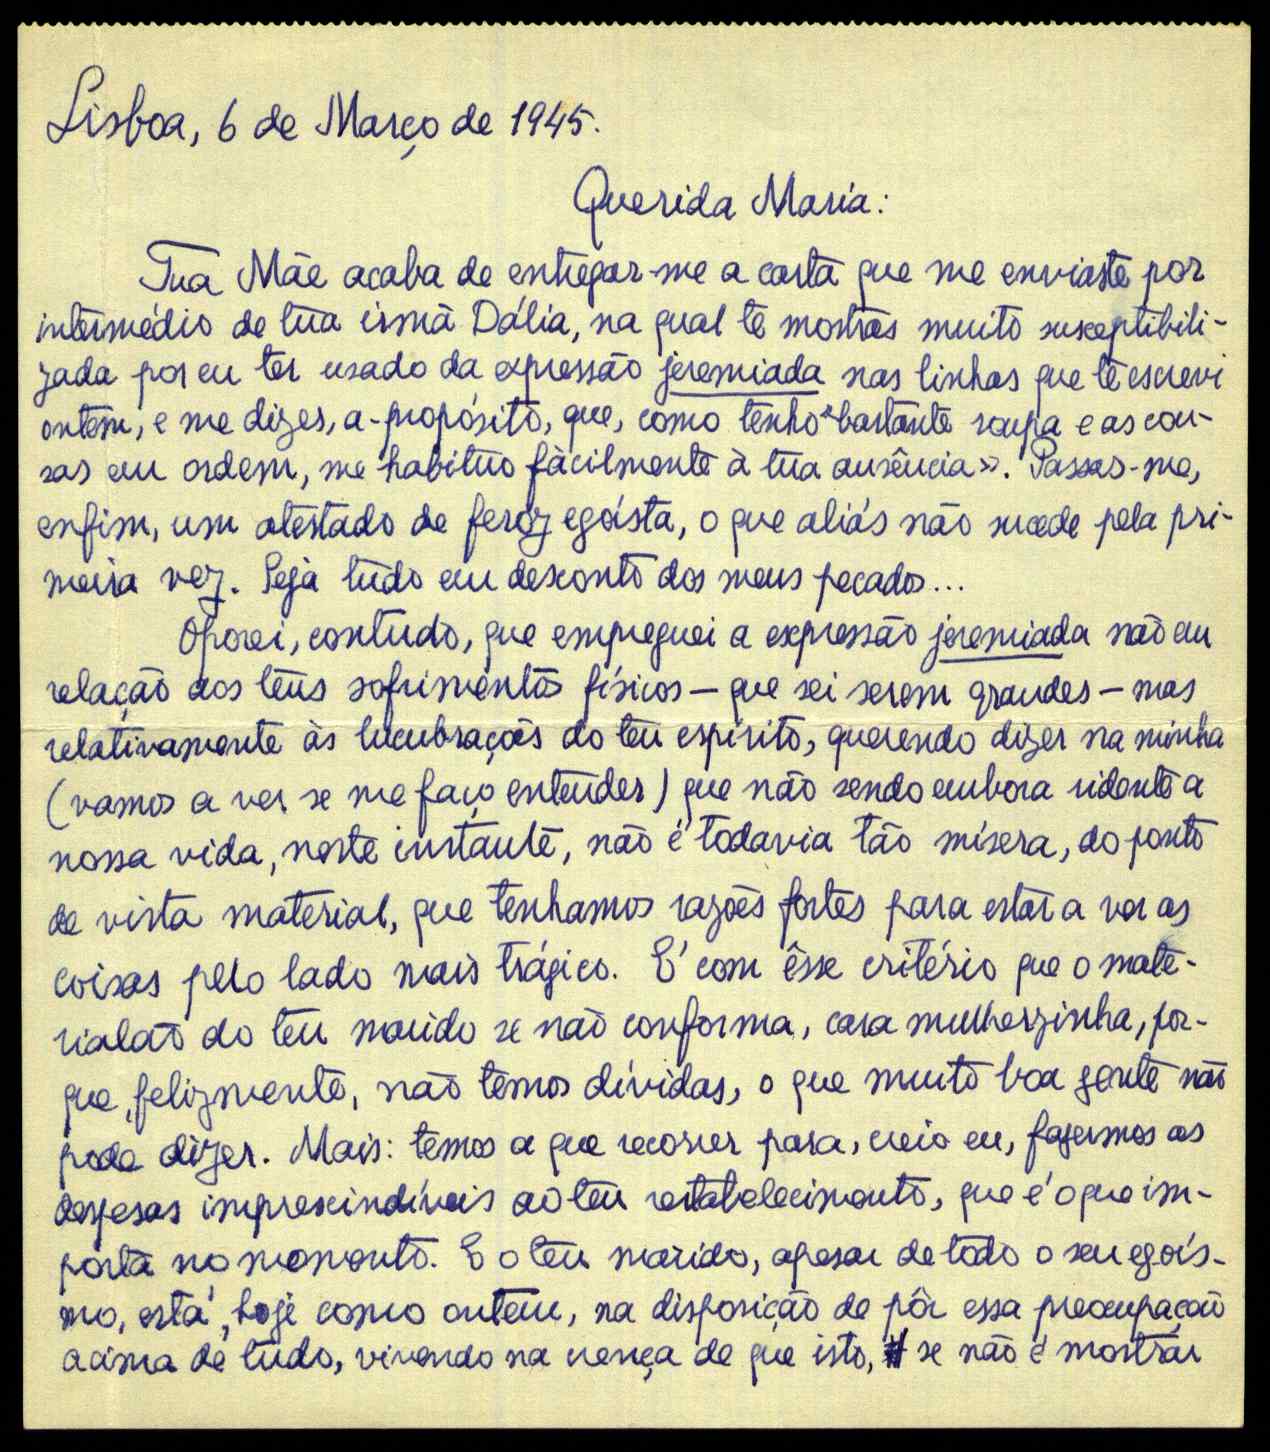 Lisboa, 6 de Março de 1945.
Querida Maria:
Tua Mãe acaba de entregar-me a carta que me enviaste por
intermédio de tua irmã Dália, na qual te mostras muito susceptibili-
zada por eu ter usado da expressão jeremiada nas linhas que te escrevi
ontem, e me dizes, a-propósito, que, como tenho «bastante roupa e as cou-
sas em ordem, me habituo fàcilmente à tua ausência». Passas-me,
enfim, um atestado de feroz egoísta, o que aliás não sucede pela pri-
meira vez. Seja tudo em desconto dos meus pecados...
Oporei, contudo, que empreguei a expressão jeremiada não em
relação aos teus sofrimentos físicos — que sei serem grandes — mas
relativamente às lucubrações do teu espírito, querendo dizer na minha
(vamos a ver se me faço entender) que não sendo embora ridente a
nossa vida, neste instante, não é todavia tão mísera, do ponto
de vista material, que tenhamos razões fortes para estar a ver as
coisas pelo lado mais trágico. É com êsse critério que o mate-
rialão do teu marido se não conforma, cara mulherzinha, por-
que, felizmente, não temos dívidas, o que muito boa gente não
pode dizer. Mais: temos a que recorrer para, creio eu, fazermos as
despesas imprescindíveis ao teu restabelecimento, que é o que im-
porta no momento. E o teu marido, apesar de todo o seu egoís-
mo, está, hoje como ontem, na disposição de pôr essa preocupação
acima de tudo, vivendo na crença de que isto, se não é mostrar